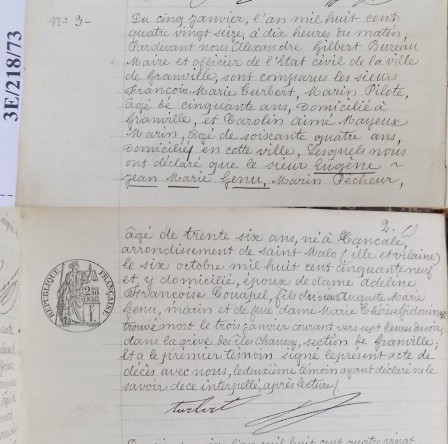 3E/218/73
No 3 -
Du cinq Janvier, l'an mil huit cent
quatre vingt seize, à dix heures du matin,
Pardevant nous Alexandre Gilbert Bureau
Maire et officier de l'Etat civil de la ville
de Granville, sont comparus les sieurs
François Marie Turbert, Marin Pilote,
âgé de cinquante ans, Domicilié à
Granville, et Carolin aimé Mayeux
Marin, âgé de soixante quatre ans,
Domiciliés en cette ville, Lesquels nous
ont déclaré que le sieur Eugène
Jean Marie Genu, Marin Pêcheur,
2.
âgé de trente six ans, né à Cancale,
arrondissement de saint Malo (ille et vilaine)
le six octobre mil huit cent cinquante neuf
et y domicilié, époux de dame adeline
Françoise Touapel, fils de Auguste Marie
Genu, marin et de feue dame Marie Thérèse
trouvé mort le trois janvier courant vers sept heures du soir,
dans la grève des îles Chausey, section de Granville;
et a le premier témoin signé le présent acte de
décès avec nous, le deuxième témoin ayant déclaré ne le
savoir de ce interpellé, après lecture/.
REPUBLIQUE FRANÇAISE
turbert